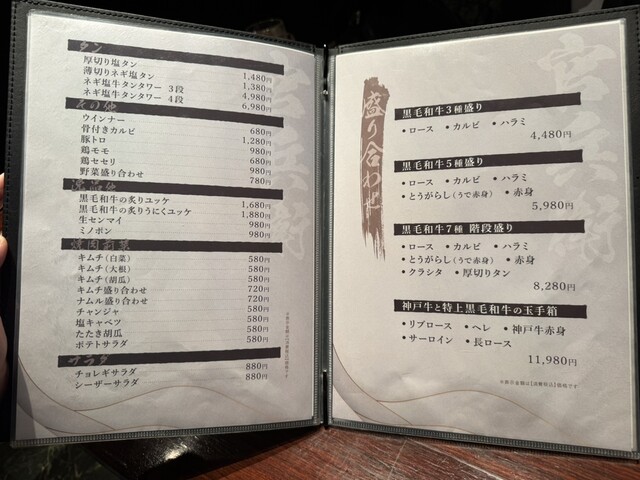 タン
厚切り塩タン 1,480円
薄切りネギ塩タン 1,380円
ネギ塩牛タンタワー 3段 4,980円
ネギ塩牛タンタワー 4段 6,980円
その他
ウインナー 680円
骨付きカルビ 1,280円
豚トロ 980円
鶏モモ 980円
鶏セセリ 680円
野菜盛り合わせ 780円
黒毛和牛の炙りユッケ 1,680円
黒毛和牛の炙りうにくユッケ 1,880円
生センマイ 980円
ミノポン 980円
キムチ(白菜) 580円
キムチ(大根) 580円
キムチ(胡瓜) 580円
キムチ盛り合わせ 720円
ナムル盛り合わせ 720円
チャンジャ 580円
塩キャベツ 580円
たたき胡瓜 580円
ポテトサラダ 580円
サラダ
チョレギサラダ 880円
シーザーサラダ 880円
盛り合わせ
黒毛和牛3種盛り
• ロース • カルビ • ハラミ
4,480円
黒毛和牛5種盛り
• ロース • カルビ • ハラミ
• とうがらし(うで赤身) • 赤身
5,980円
黒毛和牛7種 階段盛り
• ロース • カルビ • ハラミ
• とうがらし(うで赤身) • 赤身
• クラシタ • 厚切りタン
8,280円
神戸牛と特上黒毛和牛の玉手箱
• リブロース • ヘレ • 神戸牛赤身
• サーロイン • 長ロース
11,980円